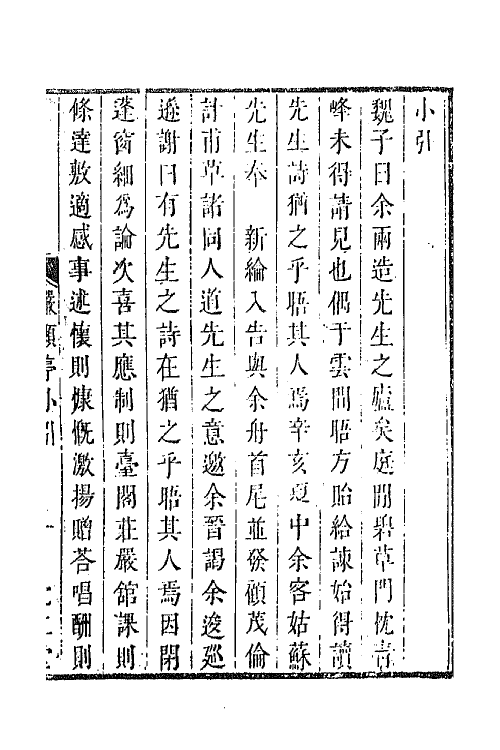 小引
魏子曰余兩造先生之廬矣庭閒碧草門枕青
峰未得請見也偶于雲間晤方貽給諫始得讀
先生詩猶之乎晤其人焉辛亥夏中余客姑蘇
先生奉　新綸入告與余舟首尾並發顧茂倫
計甫草諸同人道先生之意邀余晉謁余逡巡
遜謝曰有先生之詩在猶之乎晤其人焉因閉
蓬窗細為論次喜其應制則臺閣莊嚴館課則
條達敷適感事述懷則慷慨激揚贈荅唱酬則
嚴顥亭小引